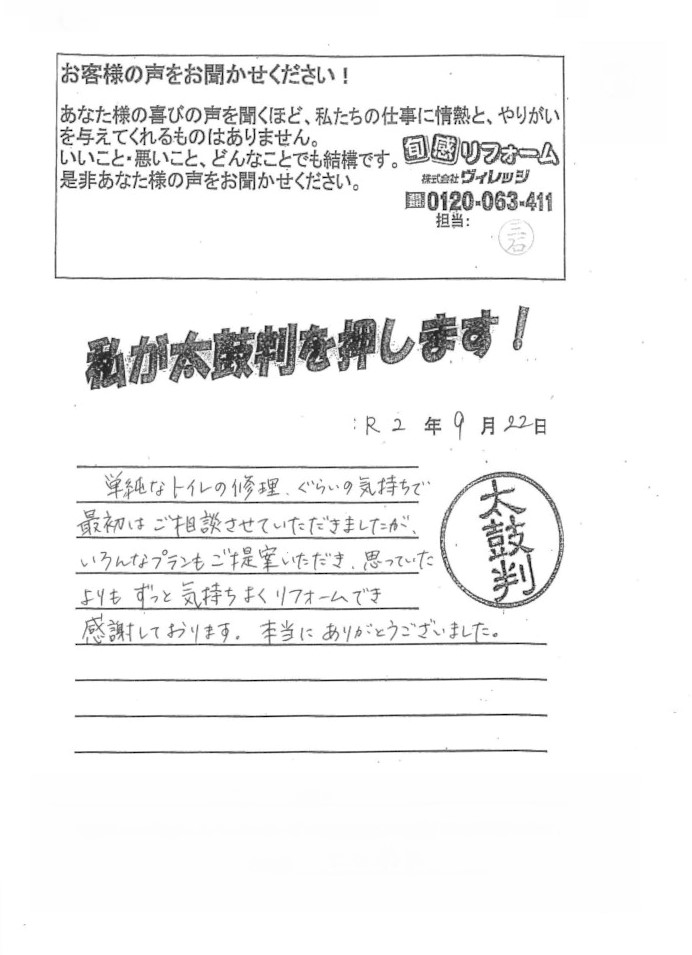 お客様の声をお聞かせください！
あなた様の喜びの声を聞くほど、私たちの仕事に情熱と、やりがい
を与えてくれるものはありません。
いいこと・悪いこと、どんなことでも結構です。
是非あなた様の声をお聞かせください。
旬感リフォーム
株式会社ヴィレッジ
0120-063-411
担当：
三石
私が太鼓判を押します！
：R2年9月22日
単純なトイレの修理、ぐらいの気持ちで
最初はご相談させていただきましたが、
いろんなプランもご提案いただき、思っていた
よりもずっと気持ちよくリフォームでき
感謝しております。本当にありがとうございました。
太鼓判